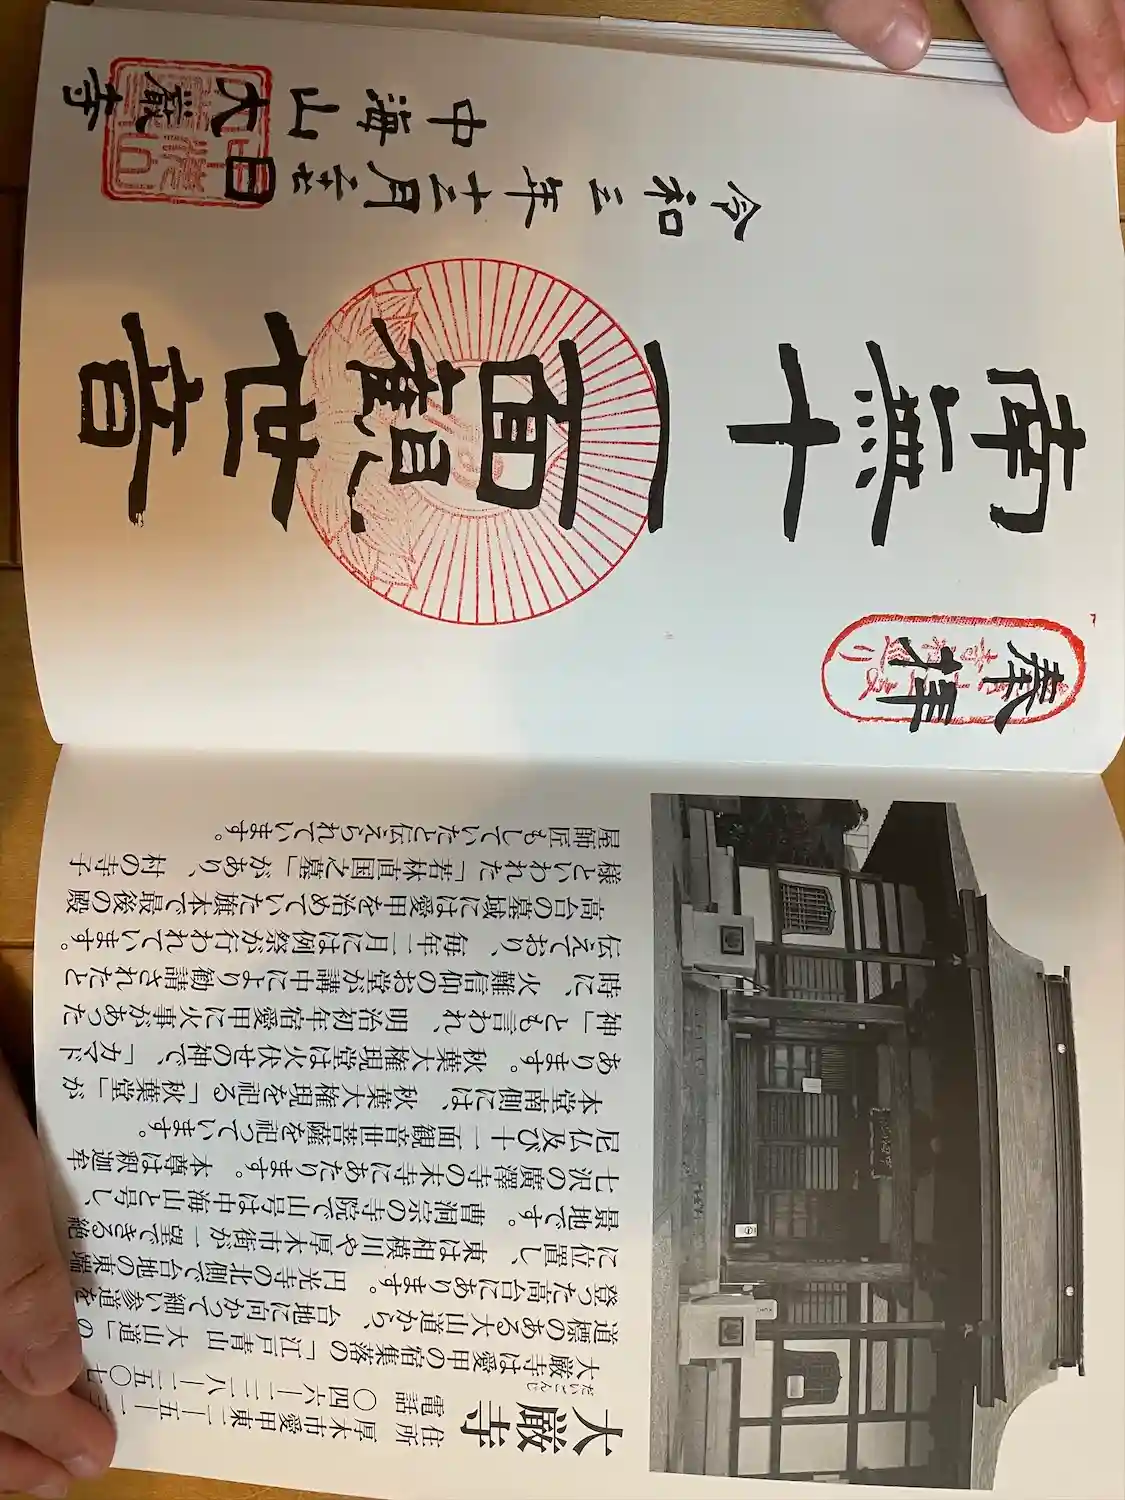 大厳寺
だいごんじ
住所 厚木市愛甲東二―五―一
電話 〇四六―二二八―二五〇七
大厳寺は愛甲の宿集落の「江戸青山 大山道」の
道標のある大山道から、台地に向かって細い参道を
登った高台にあります。円光寺の北側で台地の東端
に位置し、東は相模川や厚木市街が一望できる絶
景地です。曹洞宗の寺院で山号は中海山と号し、
七沢の廣澤寺の末寺にあたります。本尊は釈迦牟
尼仏及び十一面観世音菩薩を祀っています。
本堂南側には、秋葉大権現を祀る「秋葉堂」が
あります。秋葉大権現堂は火伏せの神で、「カマド
神」とも言われ、明治初年宿愛甲に火事があった
時に、火難信仰のお堂が講中により勧請されたと
伝えており、毎年二月には例祭が行われています。
高台の墓域には愛甲を治めていた旗本で最後の殿
様といわれた「若林直国之墓」があり、村の寺子
屋師匠もしていたと伝えられています。
奉拝
南無十一面観世音
令和三年十二月二十七日
中海山 大厳寺